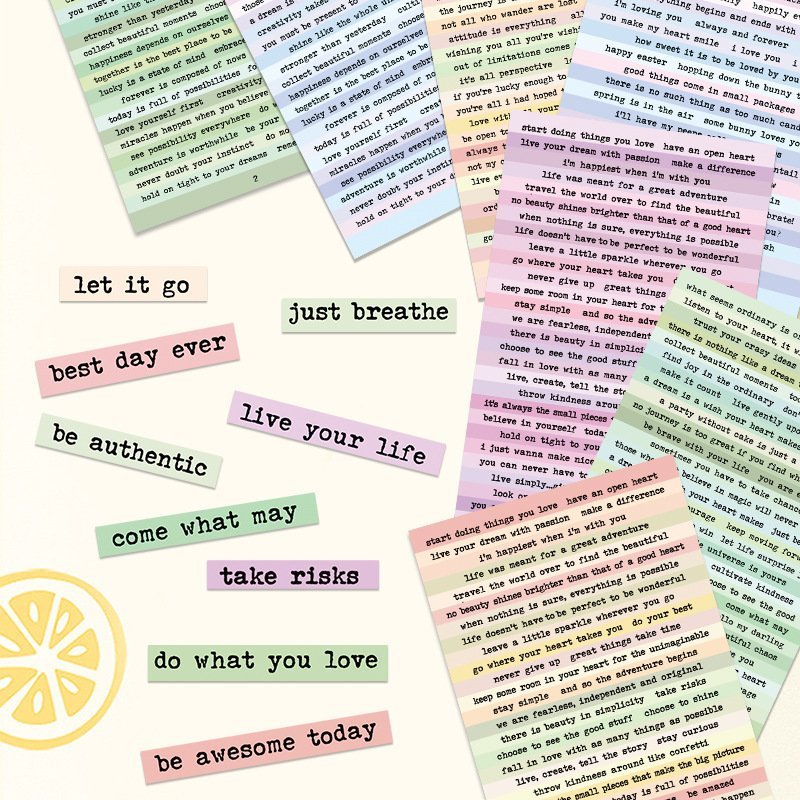 you must
shine like th
stronger than yesterday
collect beautiful moments choos
happiness depends on ourselves
together is the best place to be
lucky is a state of mind embrac
forever is composed of nows
today is full of possibilities fo
love yourself first creativity
miracles happen when you believe
see possibility everywhere do w
adventure is worthwhile be your
never doubt your instinct do mo
hold on tight to your dreams reme
2
those
a dream is
creativity takes
you must be present to
shine like the whole univer
stronger than yesterday cultiv
collect beautiful moments choose
happiness depends on ourselves
together is the best place to
lucky is a state of mind embr
forever is composed of no
today is full of possibilities
love yourself first crea
miracles happen when you
see possibility everywhe
adventure is worthwhile
never doubt your inst
hold on tight to your d
the journey is
not all who wander are lost
attitude is everything all
wishing you all you're wishi
out of limitations comes
it's all perspective
if you're lucky enough to
you're all i had hoped
love with all your
be open to
always
not my c
live ev
everything begins and ends with
i'm loving you always and forever
you make my heart smile i love you
how sweet it is to be loved by you
happy easter hopping down the bunny t
good things come in small packages
there is no such thing as too much cand
spring is in the air some bunny loves yo
i'll have my peeps
start doing things you love have an open heart
live your dream with passion make a difference
i'm happiest when i'm with you
life was meant for a great adventure
travel the world over to find the beautiful
no beauty shines brighter than that of a good heart
when nothing is sure, everything is possible
life doesn't have to be perfect to be wonderful
leave a little sparkle wherever you go
go where your heart takes you
never give up great things
keep some room in your heart for t
stay simple and so the adve
we are fearless, independent
there is beauty in simplici
choose to see the good stuff
fall in love with as many
live, create, tell the sto
throw kindness arou
it's always the small pieces
believe in yourself toda
hold on tight to you
i just wanna make nice
you can never have to
live simply...
look on
what seems ordinary is
listen to your heart, it w
trust your crazy ideas
there is nothing like a dream
collect beautiful moments too
find joy in the ordinary don't
make it count live gently upo
a dream is a wish your heart makes
a party without cake is just a
no journey is too great if you find wh
be brave with your life you are
sometimes you have to take chanc
believe in magic will never
your heart makes Just be
courage keep moving forw
win let life surprise
universe is yours
cultivate kindness
choose to see the good
come what may
hello my darling
beautiful chaos
let it go
just breathe
best day ever
live your life
be authentic
come what may
take risks
do what you love
be awesome today
start doing things you love have an open heart
live your dream with passion make a difference
i'm happiest when i'm with you
life was meant for a great adventure
travel the world over to find the beautiful
no beauty shines brighter than that of a good heart
when nothing is sure, everything is possible
life doesn't have to be perfect to be wonderful
leave a little sparkle wherever you go
go where your heart takes you do your best
never give up great things take time
keep some room in your heart for the unimaginable
stay simple and so the adventure begins
we are fearless, independent and original
there is beauty in simplicity take risks
choose to see the good stuff choose to shine
fall in love with as many things as possible
live, create, tell the story stay curious
throw kindness around like confetti
the small pieces that make the big picture
today is full of possiblities
be amazed
happen